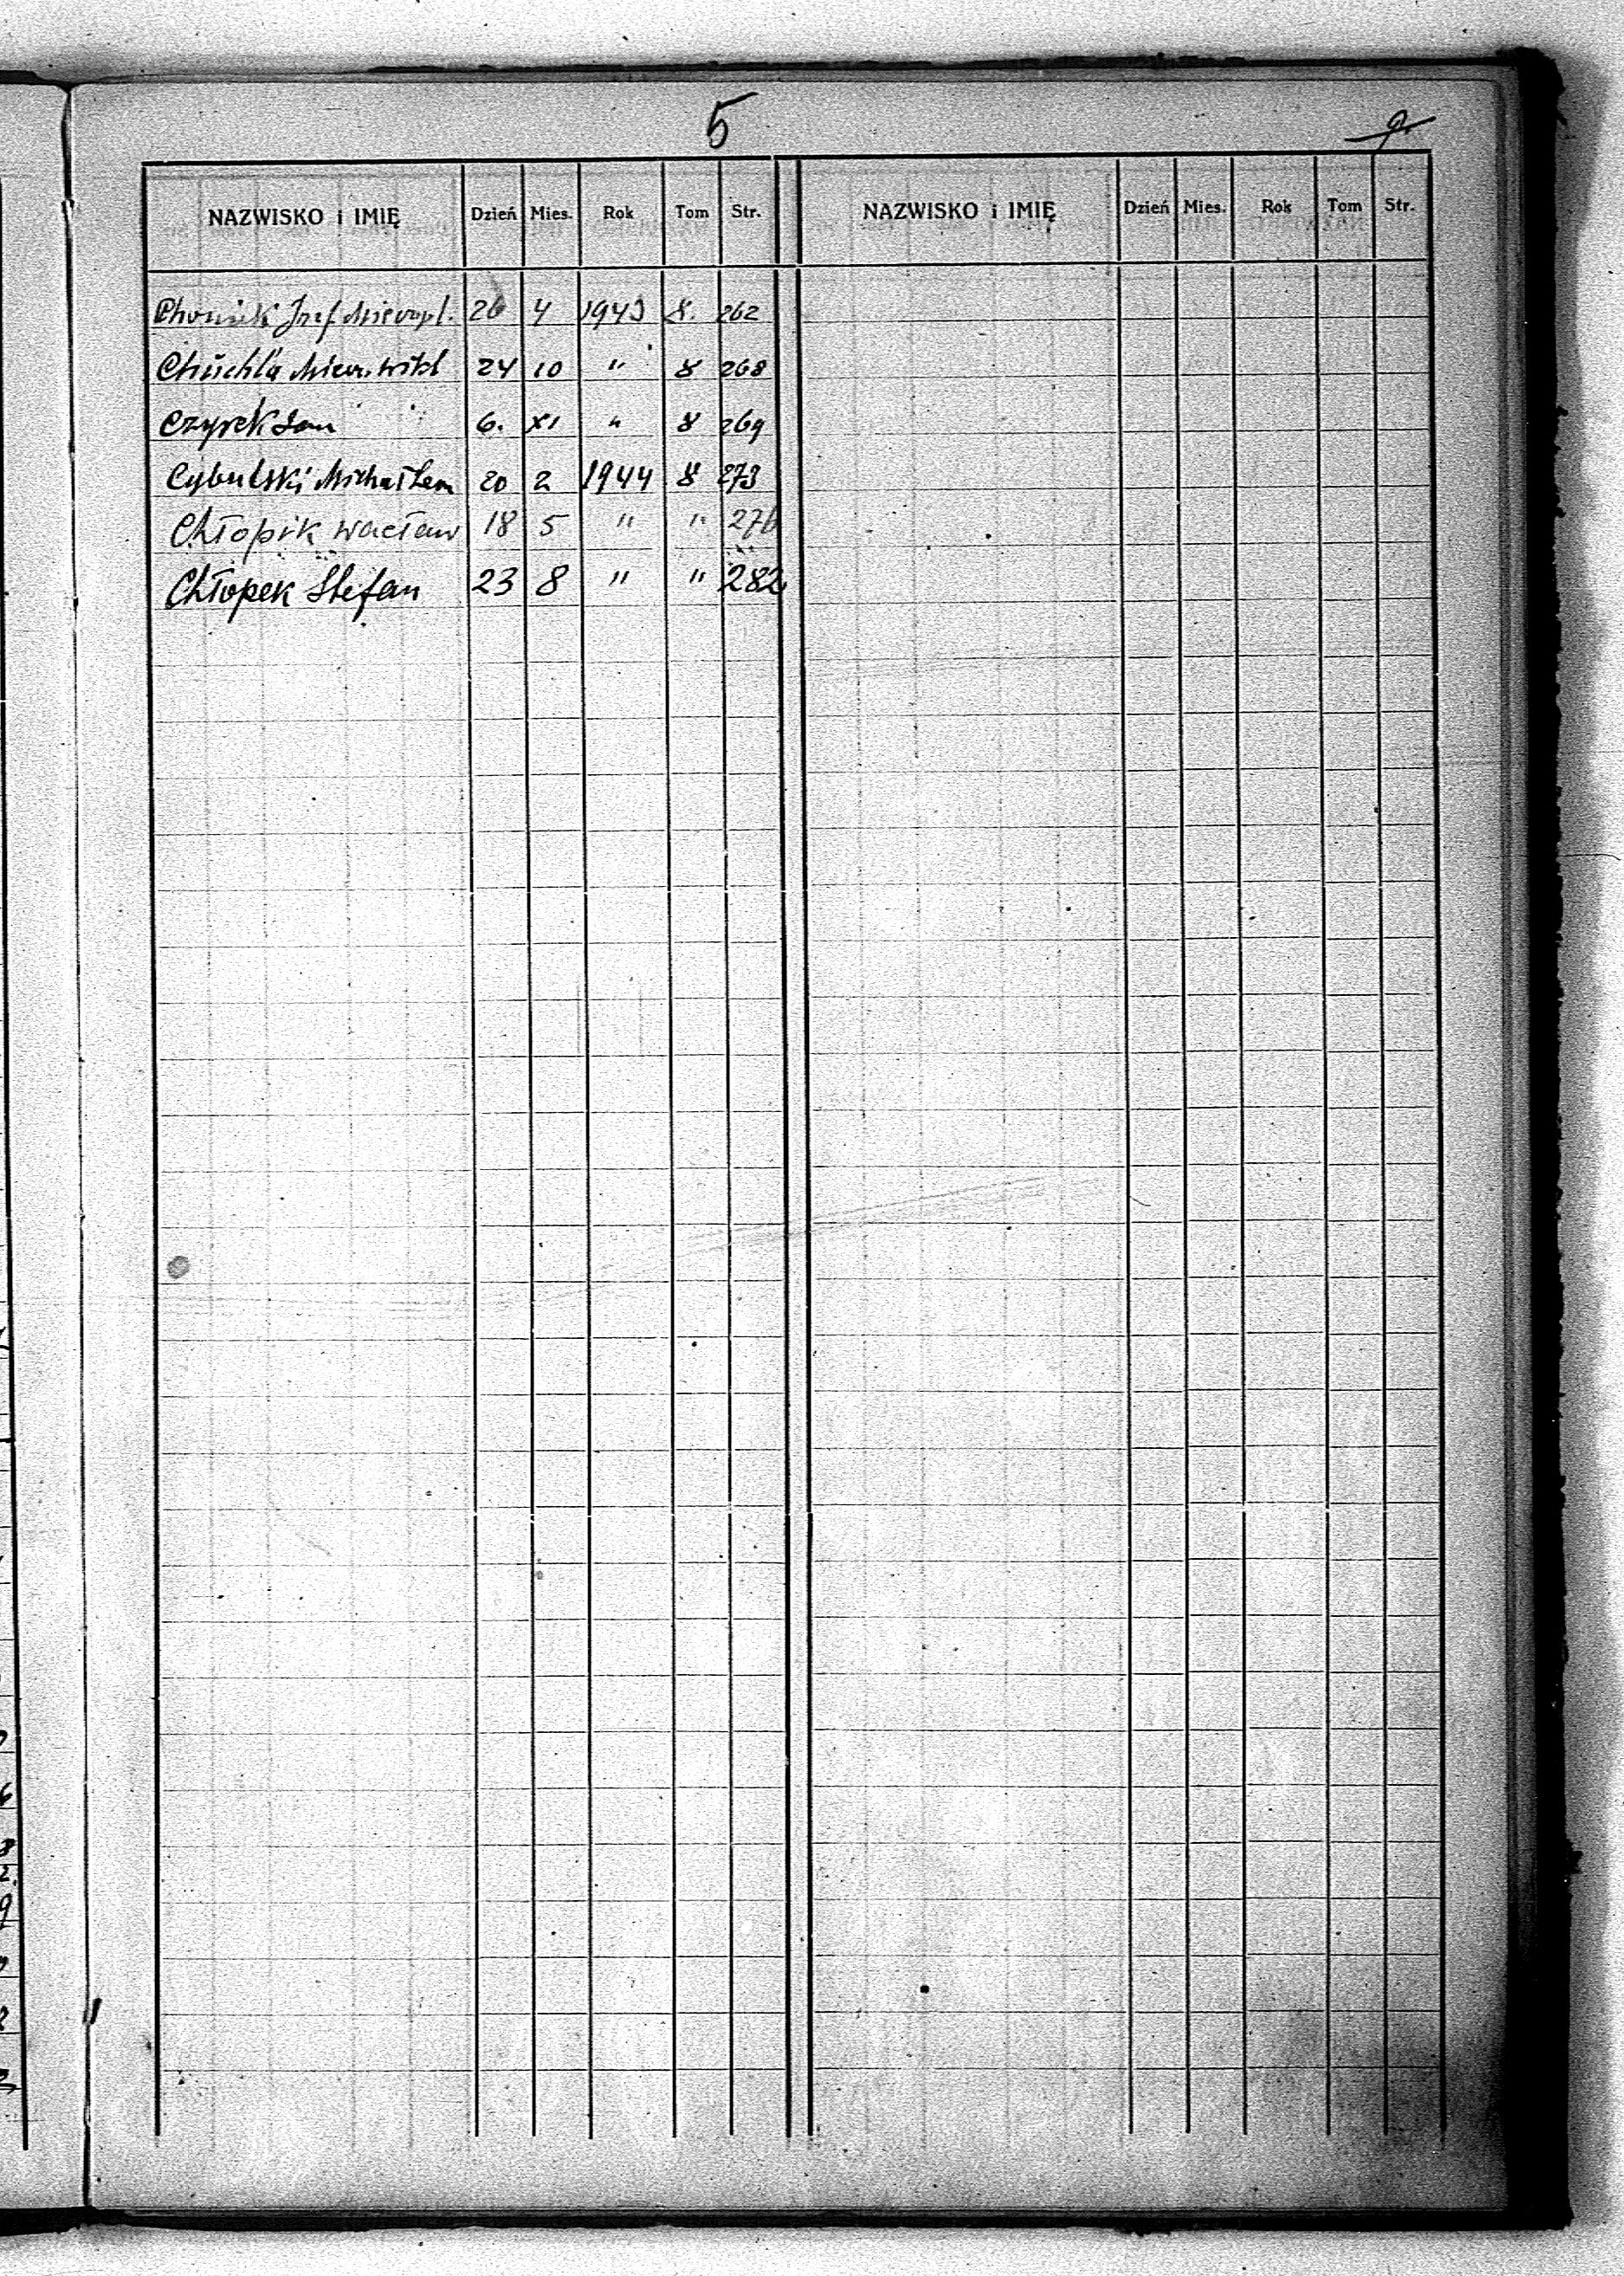 5
9.
NAZWISKO i IMIĘ Dzień Mies. Rok Tom Str. NAZWISKO i IMIĘ Dzień Mies. Rok Tom Str.
26 4 1943 8. 262
Chuchla 24 10 " 8 268
Czyrek Jan 6. XI " 8 269
Cybulski Michał 20 2 1944 8 273
Chłopik Wacław 18 5 " " 276
Chłopek Stefan 23 8 " " 282